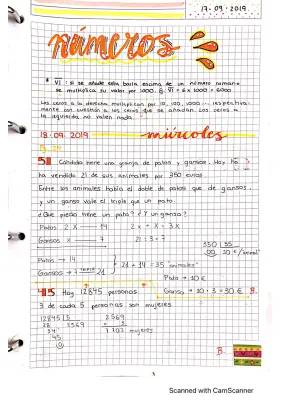 17·09·2019
números
* V̅I̅ : si se añade esta barita encima de un número romano
se multiplica su valor por 1000. Ej: V̅I̅ = 6 x 1000 = 6000
Los ceros a la derecha multiplican por 10, 100, 1000... respectiva-
mente con cuantos a los ceros que se añadan. Los ceros a
la izquierda no valen nada.
18·09·2019 miércoles
51 Candida tiene una granja de patos y gansos. Hoy ha
ha vendido 21 de sus animales por 350 euros.
Entre los animales había el doble de patos que de gansos
y un ganso vale el triple que un pato.
¿Qué precio tiene un pato? ¿Y un ganso?
Patos 2 x → 14 2x + x = 3x
Gansos x → 7 21 : 3 = 7
350 35
00 10 €/animal
Patos → 14
Gansos → 21
21 + 14 = 35 "animales"
Pato → 10 €
Ganso → 10 · 3 = 30 € B.
45 Hay 12845 personas
3 de cada 5 personas son mujeres
12845 5 2569
28 2569 x 3
34 7707 mujeres
45
0
B.
Scanned with CamScanner